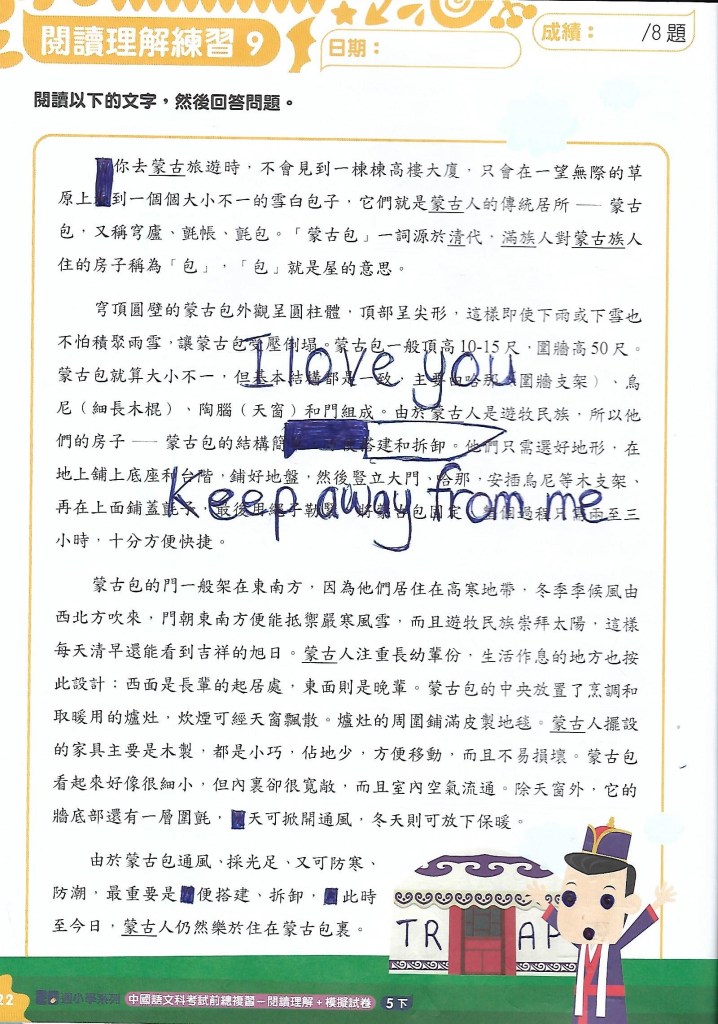 閱讀理解練習 9
日期：
成績： /8 題
閱讀以下的文字，然後回答問題。
你去蒙古旅遊時，不會見到一棟棟高樓大廈，只會在一望無際的草
原上 到一個個大小不一的雪白包子，它們就是蒙古人的傳統居所 —— 蒙古
包，又稱穹廬、氈帳、氈包。「蒙古包」一詞源於清代，滿族人對蒙古族人
住的房子稱為「包」，「包」就是屋的意思。
穹頂圓壁的蒙古包外觀呈圓柱體，頂部呈尖形，這樣即使下雨或下雪也
不怕積聚雨雪，讓蒙古包受壓倒塌。蒙古包一般頂高 10-15 尺，圍牆高 50 尺。
I love you
蒙古包就算大小不一，但基本結構都是一致，主要由哈那（圍牆支架）、烏
尼（細長木棍）、陶腦（天窗）和門組成。由於蒙古人是遊牧民族，所以他
們的房子 —— 蒙古包的結構簡 搭建和拆卸。他們只需選好地形，在
地上鋪上底座和台階，鋪好地盤，然後豎立大門、哈那，安插烏尼等木支架、
Keep away from me
再在上面鋪蓋氈子，最後用繩子勒緊，將蒙古包固定，整個過程只需兩至三
小時，十分方便快捷。
蒙古包的門一般架在東南方，因為他們居住在高寒地帶，冬季季候風由
西北方吹來，門朝東南方便能抵禦嚴寒風雪，而且遊牧民族崇拜太陽，這樣
每天清早還能看到吉祥的旭日。蒙古人注重長幼輩份，生活作息的地方也按
此設計：西面是長輩的起居處，東面則是晚輩。蒙古包的中央放置了烹調和
取暖用的爐灶，炊煙可經天窗飄散。爐灶的周圍鋪滿皮製地毯。蒙古人擺設
的家具主要是木製，都是小巧，佔地少，方便移動，而且不易損壞。蒙古包
看起來好像很細小，但內裏卻很寬敞，而且室內空氣流通。除天窗外，它的
牆底部還有一層圍氈， 天可掀開通風，冬天則可放下保暖。
由於蒙古包通風、採光足、又可防寒、
防潮，最重要是 便搭建、拆卸， 此時
至今日，蒙古人仍然樂於住在蒙古包裏。
TRAP
22 過小學系列 中國語文科考試前總複習－閱讀理解＋模擬試卷 5下